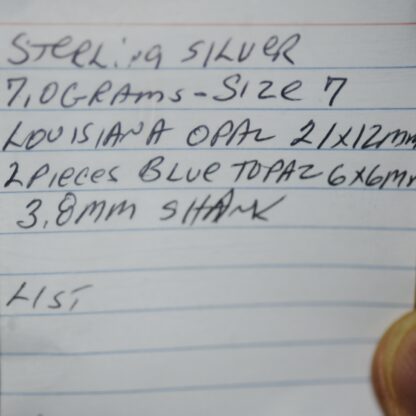 STERLING SILVER
7.0GRAMS-SIZE 7
LOUISIANA OPAL 21X12mm
2 PIECES BLUE TOPAZ 6X6m
3.8mm SHANK
LIST